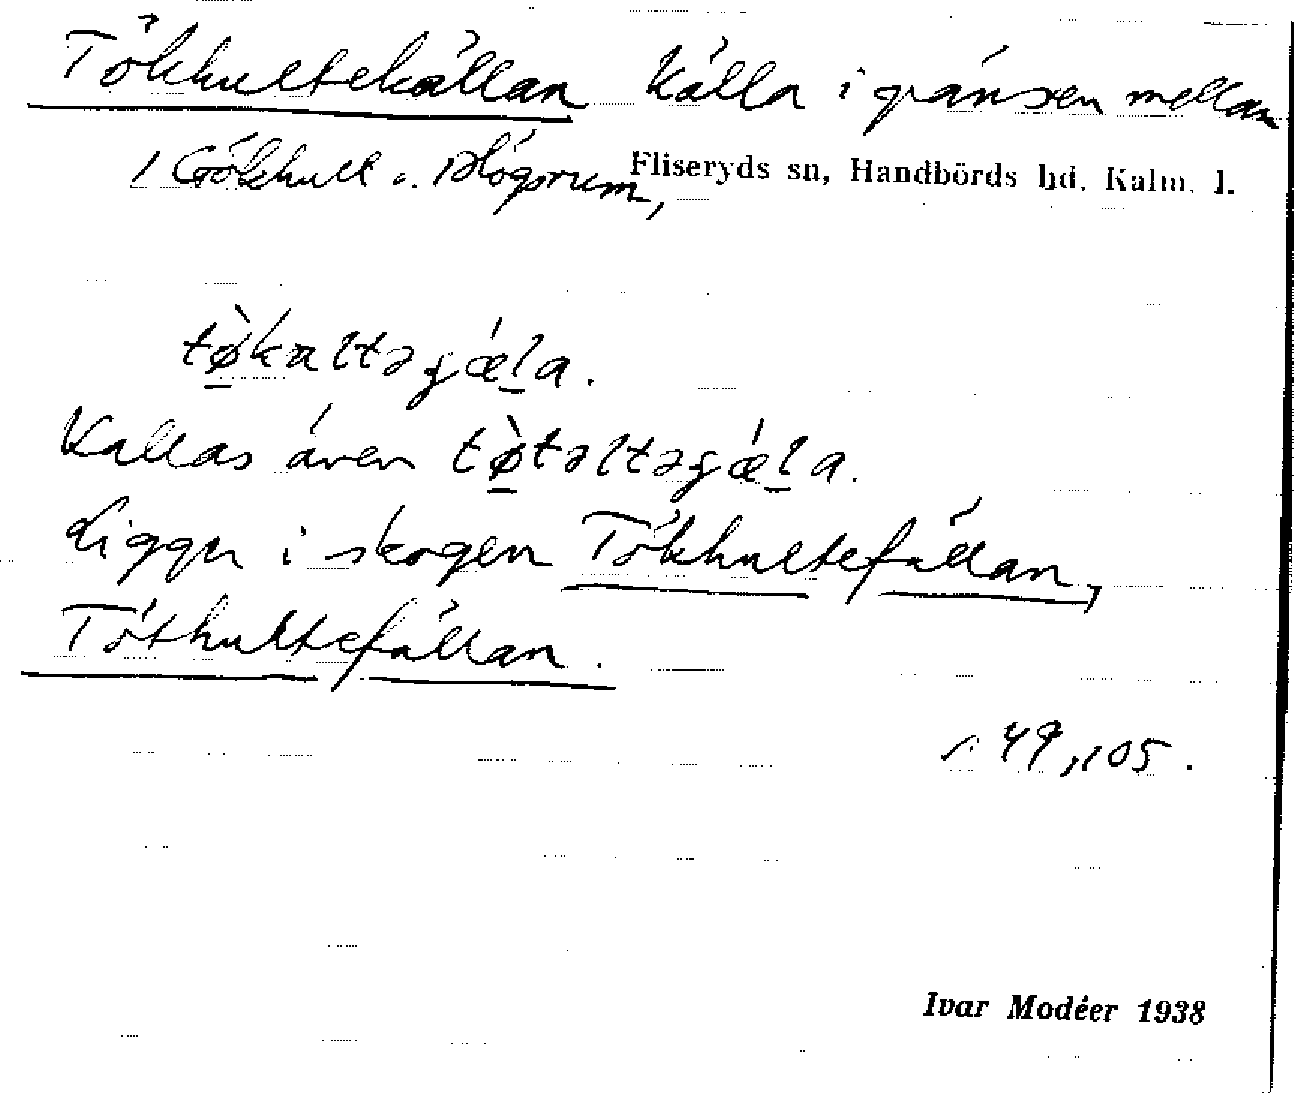 Tökhultekällan Källa i gränsen mellan
/ Gökhult o. Plögsrum, Fliseryds sn, Handbörds hd, Kalm. l.
tø̀kaltəgǽla.
Kallas även tø̀təltəgǽla.
Ligger i skogen Tökhultefällan,
Töthultefällan.
s. 49, 105.
Ivar Modéer 1938